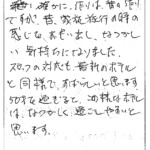 確かに、作りは、昔の作り
ですが、昔、家族旅行の時の
感じを、おもい出し、なつかし
い気持ちになりました。
スタッフの対応も最新のホテル
と同様で、すばらしいと思います
50才を過ぎると、この様なホテル
は、なつかしく、過ごしやすいと
思います。